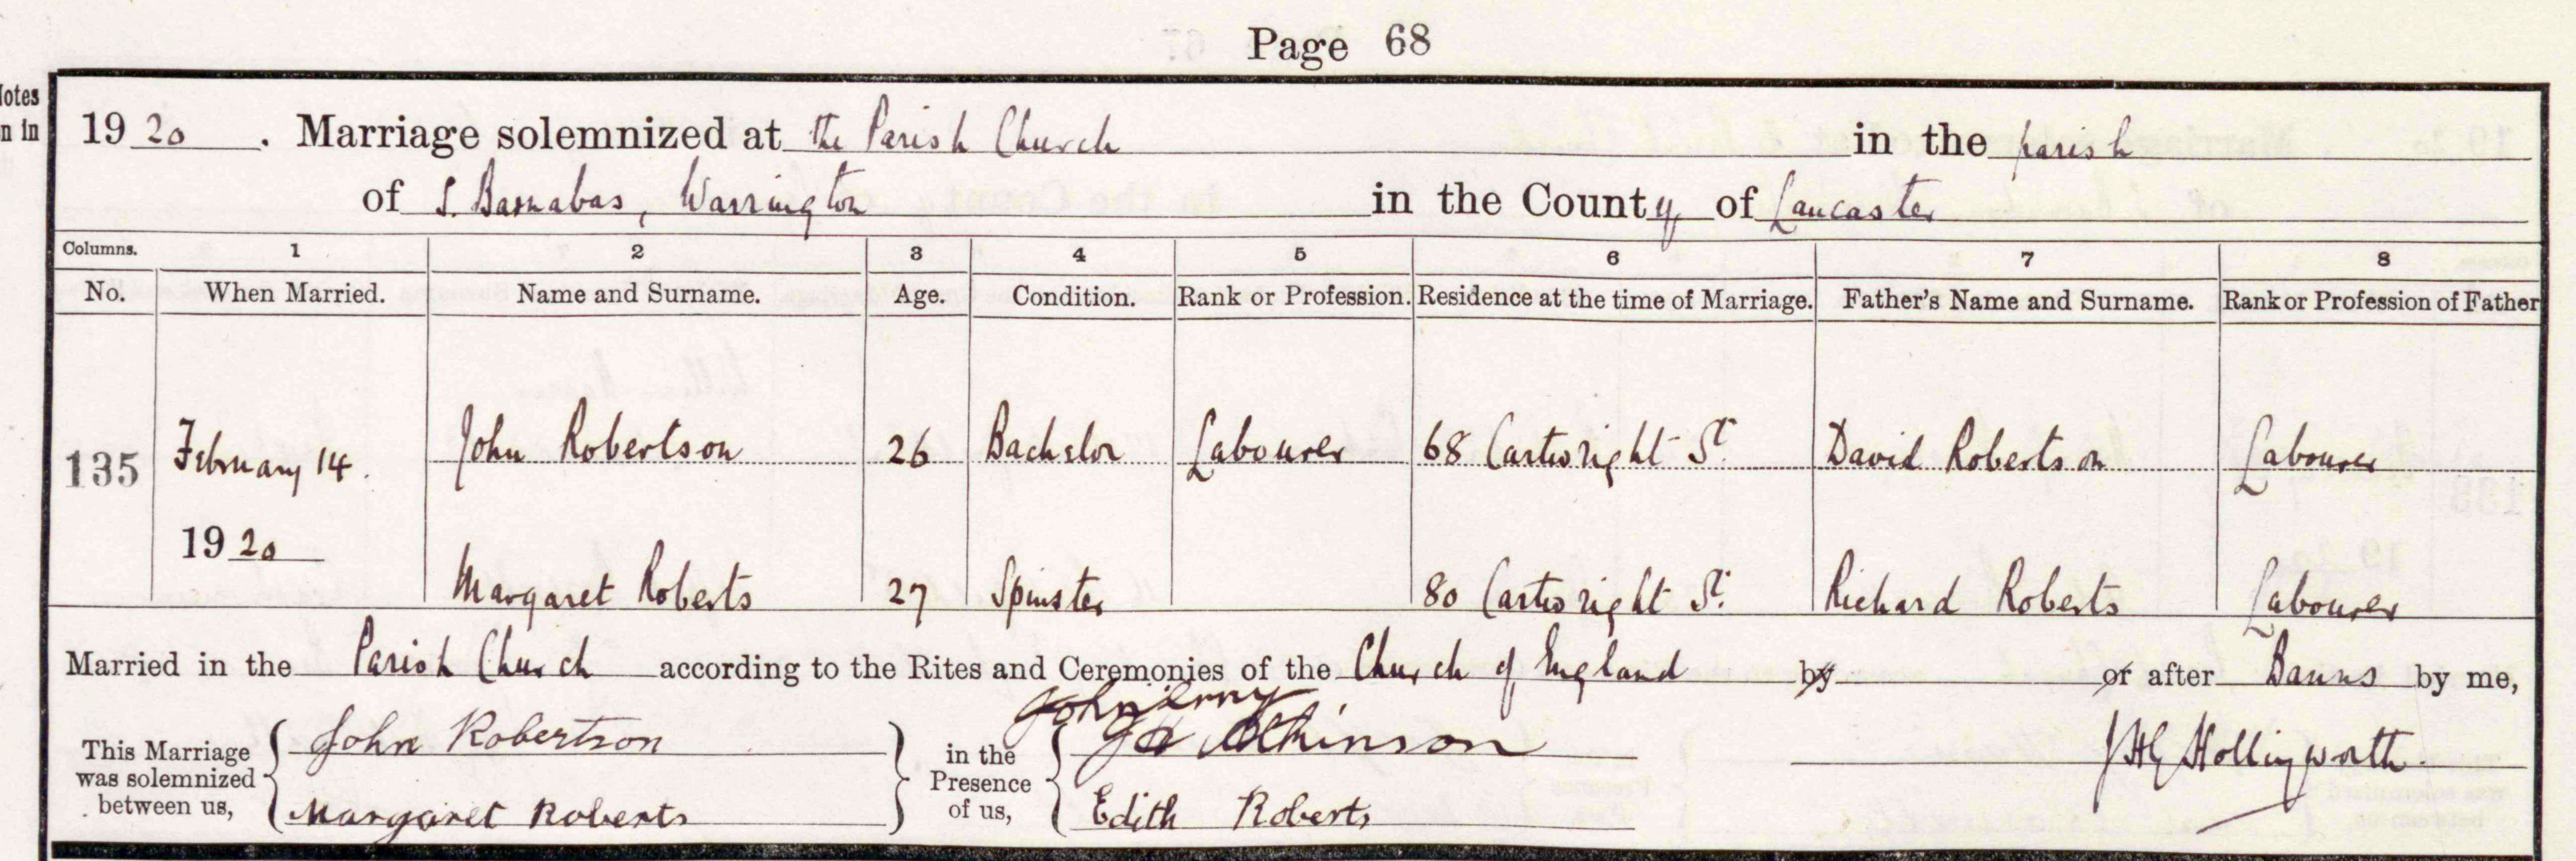 Page 68
otes
n in
1920. Marriage solemnized at the Parish Church in the parish
of S. Barnabas, Warrington in the County of Lancaster
Columns. 1 2 3 4 5 6 7 8
No. When Married. Name and Surname. Age. Condition. Rank or Profession. Residence at the time of Marriage. Father's Name and Surname. Rank or Profession of Father
135 February 14. John Robertson 26 Bachelor Labourer 68 Cartwright St. David Robertson Labourer
1920
Margaret Roberts 27 Spinster 80 Cartwright St. Richard Roberts Labourer
Married in the Parish Church according to the Rites and Ceremonies of the Church of England by or after Banns by me,
John
This Marriage was solemnized between us, John Robertson in the Presence of us, Atkinson J H G Hollingworth.
Margaret Roberts Edith Roberts